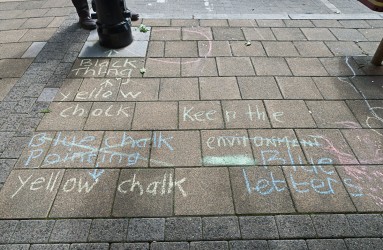 Black
Thing
yellow
chalk
Keep the
environment
Blue chalk
Pointing
Blue
letters
yellow chalk